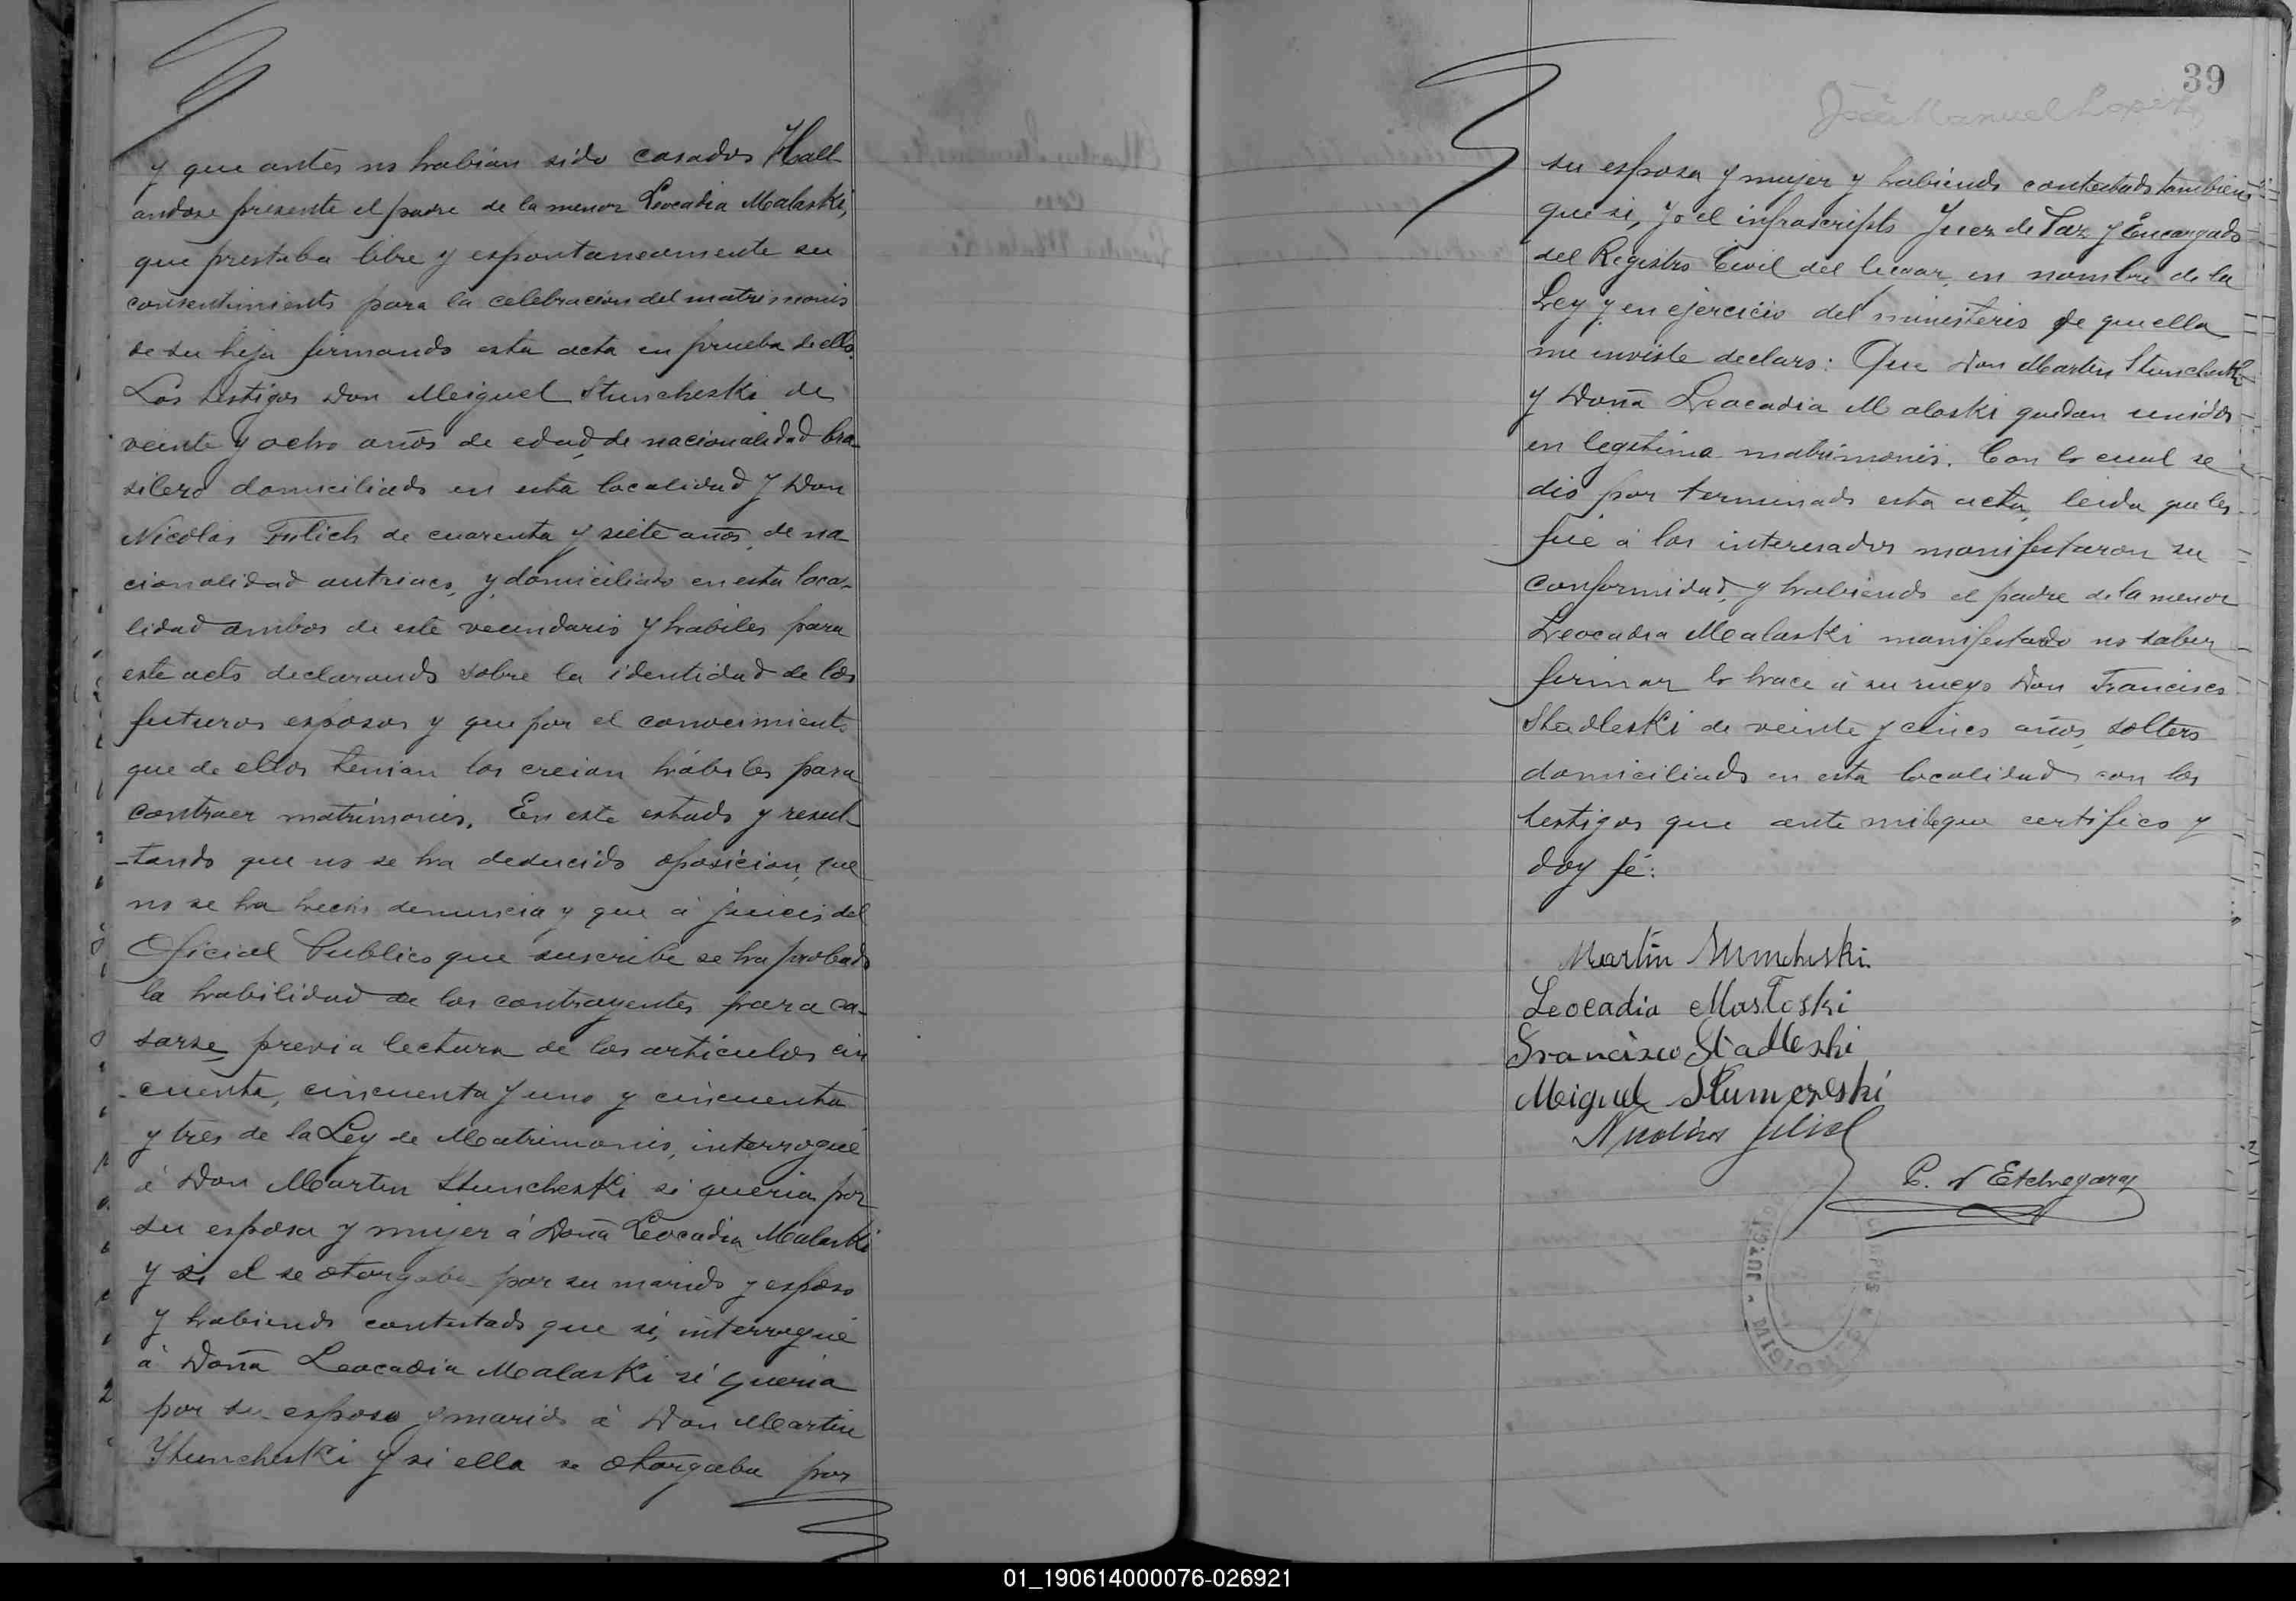 y que antes no habian sido casados Hall-
andose presente el padre de la menor Leocadia Malaski,
que prestaba libre y espontaneamente su
consentimiento para la celebracion del matrimonio
de su hija firmando esta acta en prueba de ello.
Los testigos Don Meiguel Stuncheski de
veinte y ocho años de edad, de nacionalidad bra-
silero domiciliado en esta localidad y Don
Nicolas Fulich de cuarenta y siete años, de na
cionalidad autriaco, y domiciliado en esta loca-
lidad ambos de este vecindario y habiles para
este acto declarando sobre la identidad de los
futuros esposos y que por el conocimiento
que de ellos tenian los creian hábiles para
contraer matrimonio. En este estado y resul-
-tando que no se ha deducido oposicion, que
no se ha hecho denuncia y que á juicio del
Oficial Publico que suscribe se ha probado
la habilidad de los contrayentes para ca-
sarse, previa lectura de los articulos cin
-cuenta, cincuenta y uno y cincuenta
y tres de la Ley de Matrimonio, interrogué
á Don Martin Stuncheski si queria por
su esposa y mujer á Doña Leocadia Malaski
y si el se otorgaba por su marido y esposo
y habiendo contestado que si, interrogué
á Doña Leocadia Malaski si queria
por su esposo y marido á Don Martin
Stuncheski y si ella se otorgaba por
39
José Manuel Lopez
su esposa y mujer y habiendo contestado tambien
que si, Yo el infrascripto Juez de Paz y Encargado
del Registro Civil del lugar, en nombre de la
Ley y en ejercicio del ministerio de que ella
me inviste declaro: Que Don Martin Stuncheski
y Doña Leocadia Malaski quedan unidos
en legitimo matrimonio. Con lo cual se
dio por terminado esta acta, leida que les
fué á los interesados manifestaron su
conformidad, y habiendo el padre de la menor
Leocadia Malaski manifestado no saber
firmar lo hace á su ruego Don Francisco
Stadleski de veinte y cinco años, soltero
domiciliado en esta localidad con los
testigos que ante mi de que certifico y
doy fé:
Martin Stuncheski
Leocadia Masloski
Francisco Stadleski
Meiguel Stumczeski
Nicolás Julich
P. Etchegaray
JUZGADO
MISIONES
01_190614000076-026921